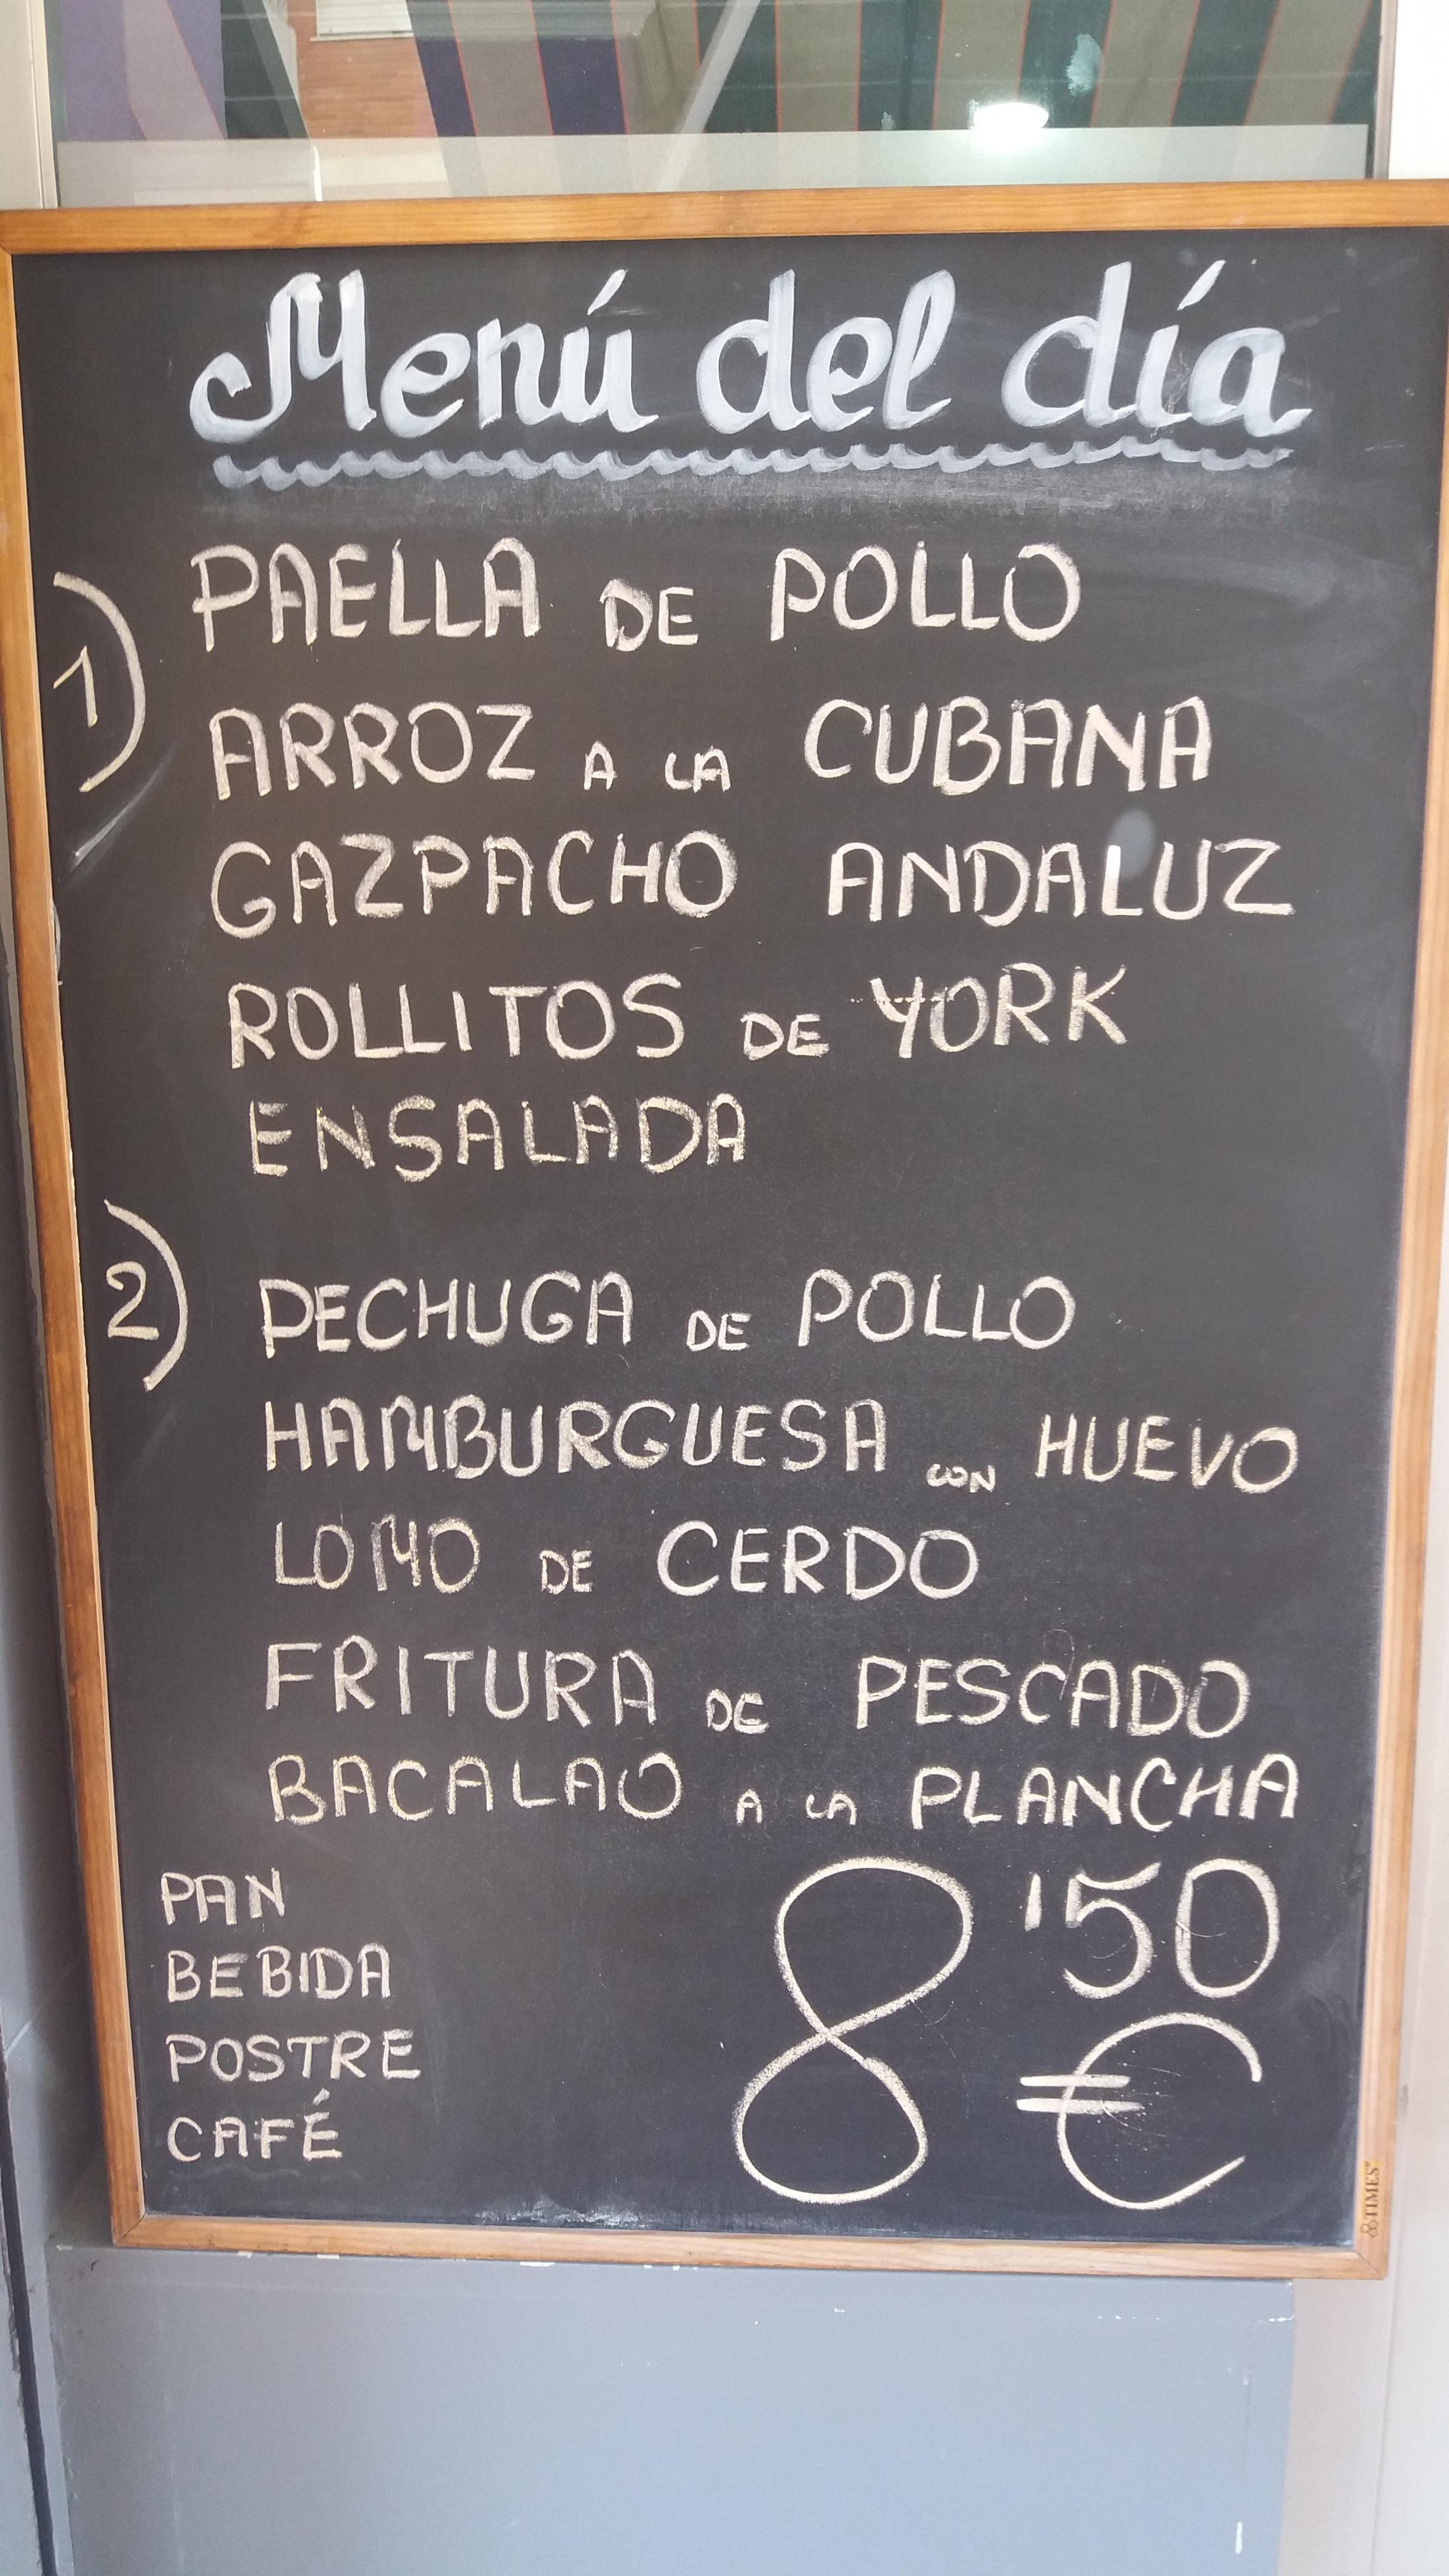 Menú del día
1)
PAELLA DE POLLO
ARROZ A LA CUBANA
GAZPACHO ANDALUZ
ROLLITOS DE YORK
ENSALADA
2)
PECHUGA DE POLLO
HAMBURGUESA CON HUEVO
LOMO DE CERDO
FRITURA DE PESCADO
BACALAO A LA PLANCHA
PAN
BEBIDA
POSTRE
CAFÉ
8'50
€
TIMES